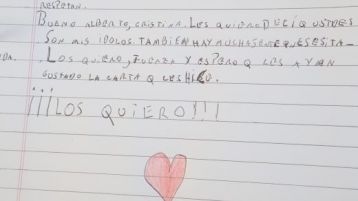 RESPETAN.
BUENO ALBERTO, CRISTINA. LES QUIERO DECÍ Q USTEDES
SON MIS IDOLOS. TAMBIEN HAY MUCHA GENTE Q ESESITA-
DA. LOS QUIERO, FUERZA Y ESPERO Q LES AYAN
GUSTADO LA CARTA Q LES HICE.
¡¡¡LOS QUIERO!!!